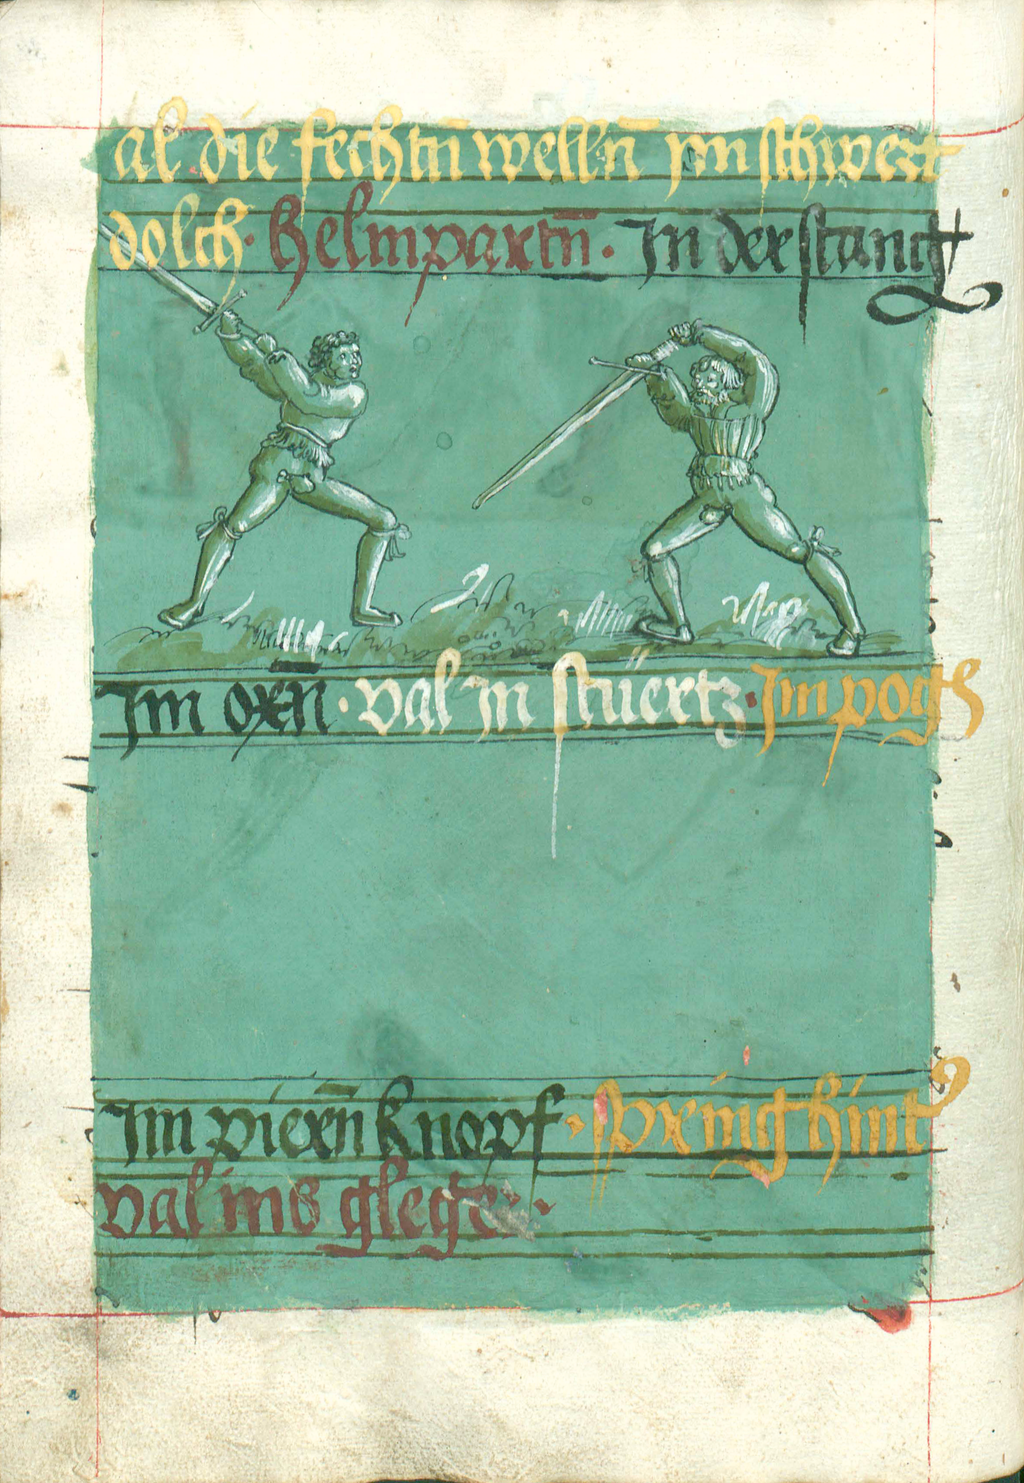 al die fechtn̄ welln̄ ym schwert
dolch · helmpartn̄ · Jn der stang
Jm oxn̄ · val jn stüertz · Jm pog
Jm viern̄ knopf · spring hint
val ins glege ·